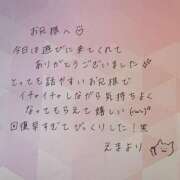 お兄様へ
今日は遊びに来てくれて
ありがとうございました
とっても話やすいお兄様で
イチャイチャしながら気持ちよく
なってもらえて嬉しい(´˘`)♡
回復早すぎてびっくりした!笑
えまより